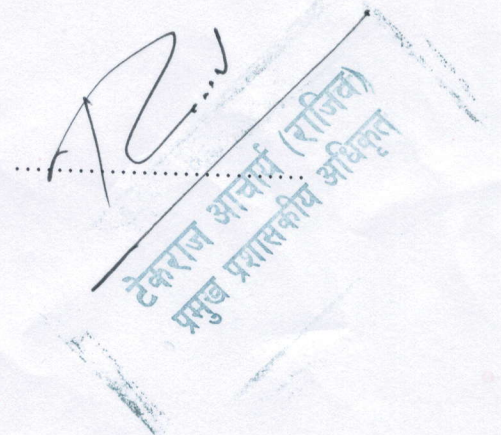 टेकराज आचार्य (राजिव)
प्रमुख प्रशासकीय अधिकृत